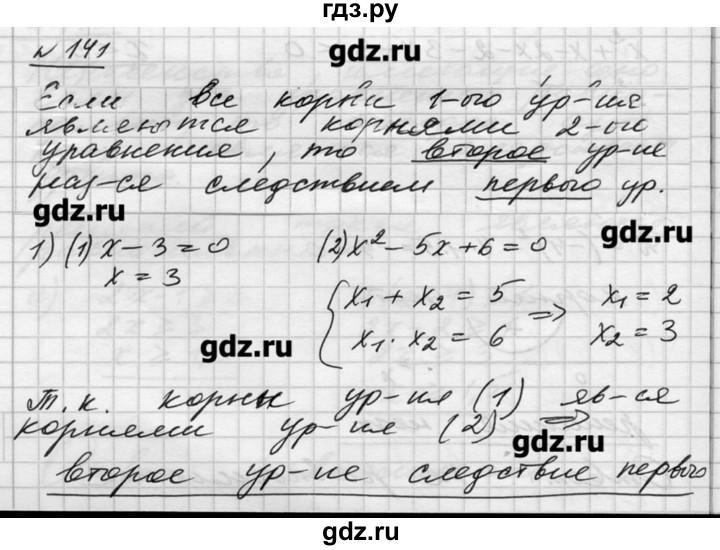 гдз.ру
x² + x - 2x - 2 - 3 = 0
gdz.ru
№ 141
Если все корни 1-ого ур-ия
являются корнями 2-ого
уравнения, то второе ур-ие
наз-ся следствием первого ур.
gdz.ru
gdz.ru
1) (1) x - 3 = 0 (2) x² - 5x + 6 = 0
x = 3
{ x₁ + x₂ = 5 x₁ = 2
x₁ · x₂ = 6 => x₂ = 3
gdz.ru
Т. к. корны ур-ия (1) яв-ся
корнями ур-ия (2) =>
gdz.ru
второе ур-ие следствие первого
gdz.ru